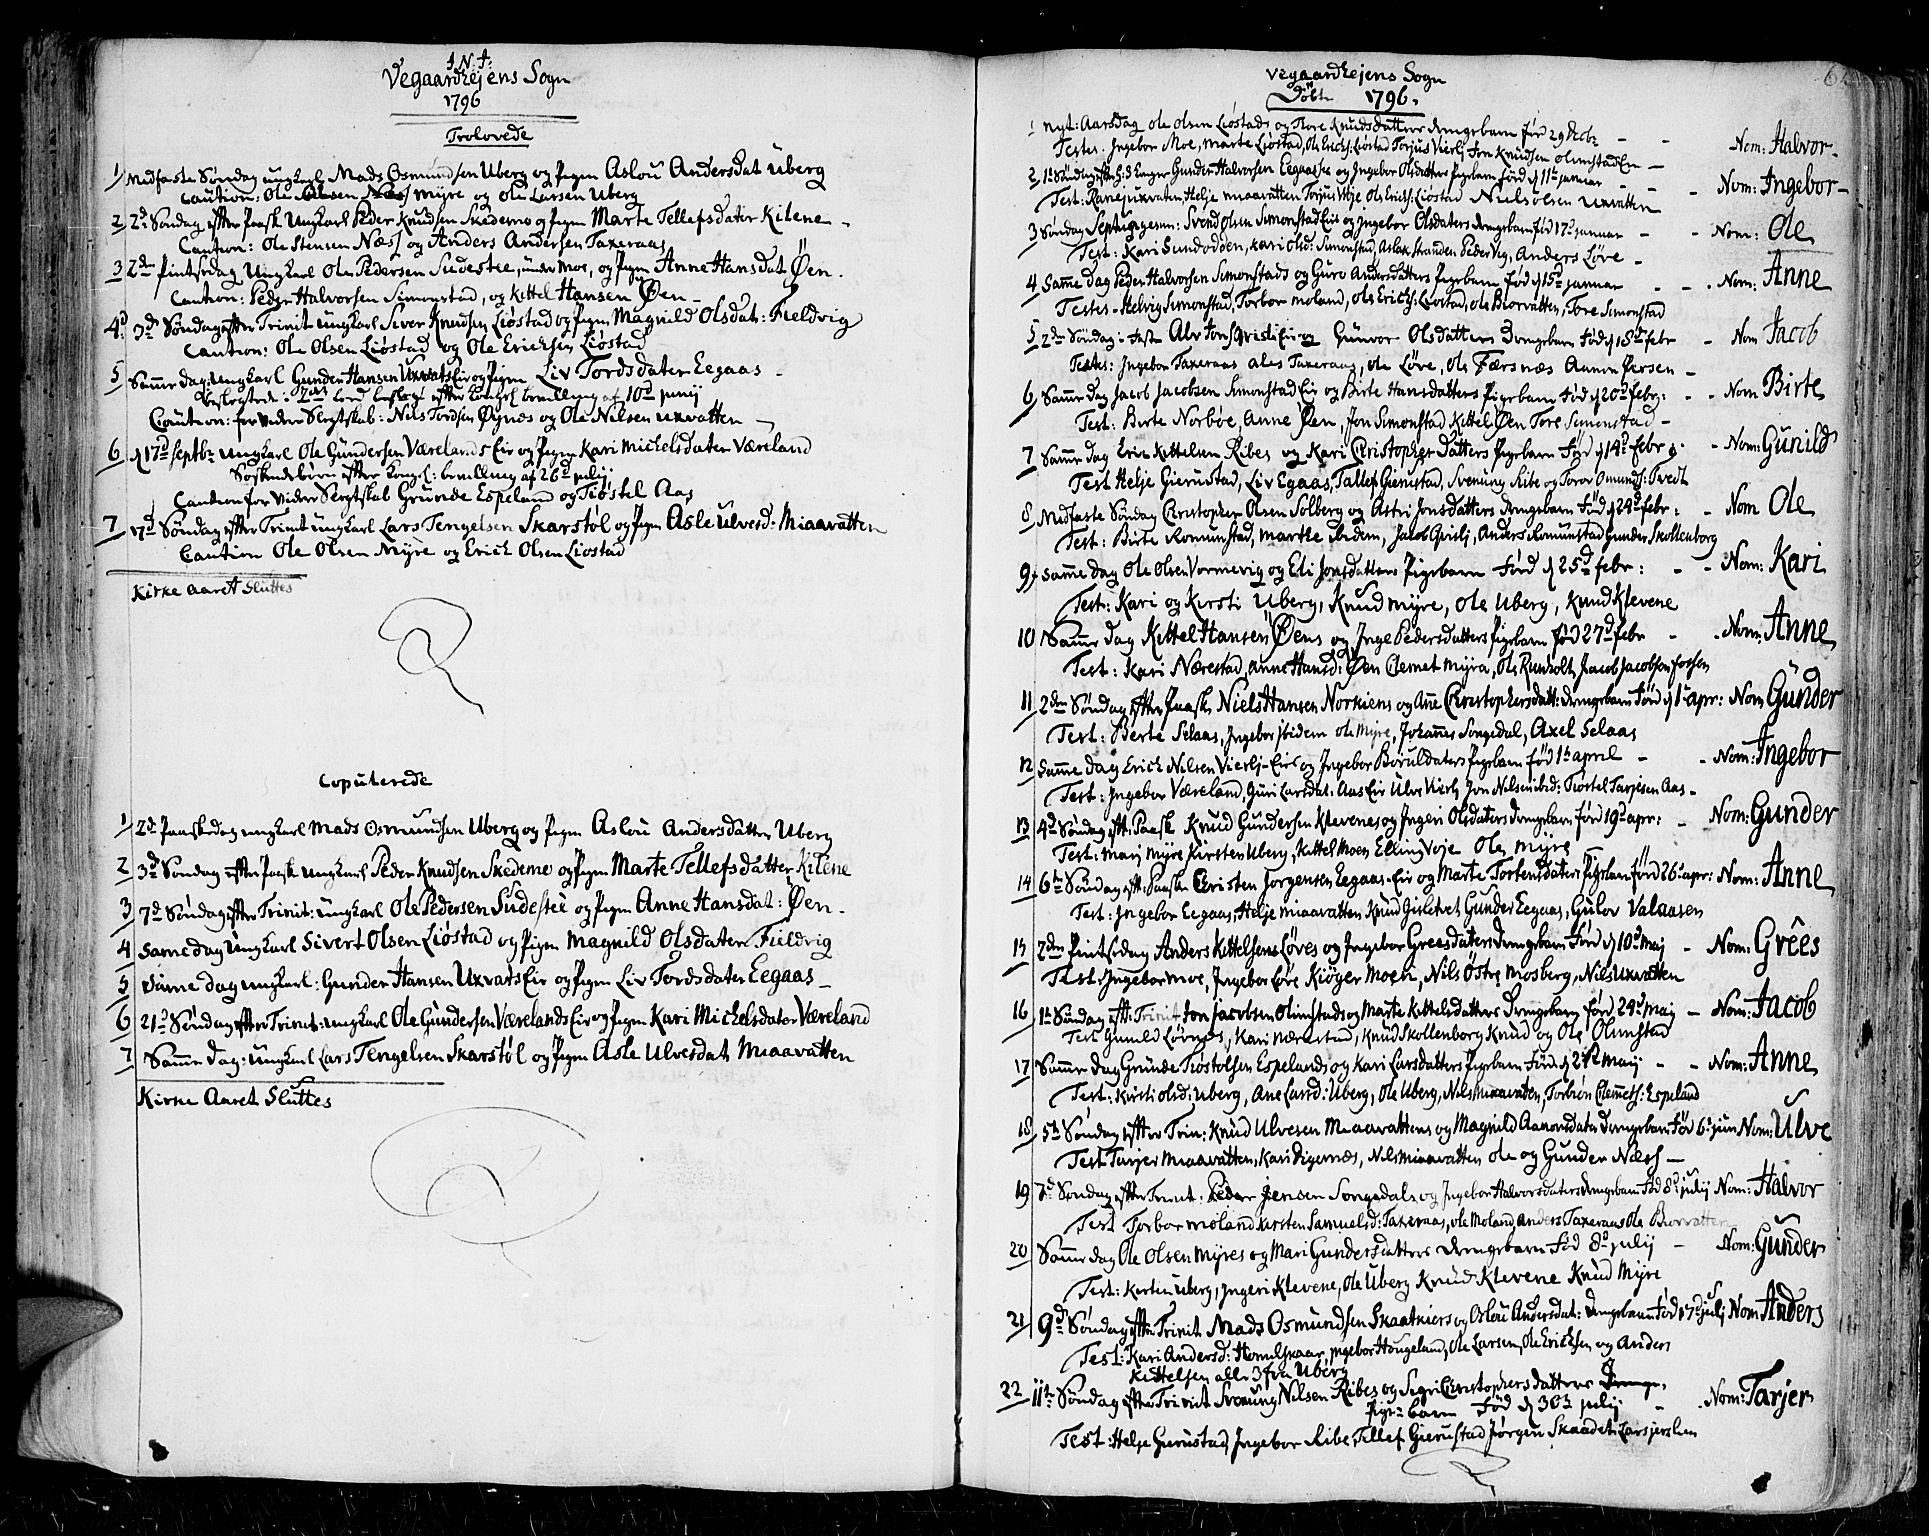 I.N.I.
Vegaardhejens Sogn
1796
Trolovede
1/ Midfaste Søndag ungkarl Mads Osmundsen Uberg og Pigen Aslou Andersdat Uberg
Caution: Ole Myre og Ole Larsen Uberg
2/ 2d Søndag efter Paask Ungkarl Peder Knudsen Skederne og Pigen Marte Tellefsdater Kilene
Caution: Ole Stensen Næss og Anders Andersen Taxeraas
3 2den Pintsedag Ungkarl Ole Pedersen Sudestee, under Moe, og Pigen Anne Hansdat Øen
Caution: Peder Halvorsen Simonstad, og Kittel Hansen Øen
4 3d Søndag efter Trinit ungkarl Siver Knudsen Liøstad og Pigen Magnild Olsdat: Fieldvig
Caution: Ole Olsen Liøstad og Ole Erichsen Liøstad
5 Samme dag: ungkarl Gunder Hansen Uxvats Eir og Pigen Liv Tordsdater Eegaas
efter kongel: bevilling af 10d junij
Caution: for videre Slegtskab: Nils Tordsen Øynes og Ole Nilsen uxvatten
6 d 17d septbr ungkarl Ole Gundersen Værelands Eir og Pigen Kari Michelsdater Væreland
Søskendebørn efter kongel: bevilling af 26d julij
Caution for videre Slegtskab Grunde Espeland og Tiøstel Aas
7 17d Søndag efter Trinit ungkarl Lars Tengelsen Skarstøl og Pigen Asle Ulvesd: Miaavatten
Caution Ole Olsen Myre og Erick Olsen Liøstad
Kirke Aaret Sluttes
Copulerede
1/ 2d Paaskedag ungkarl Mads Osmundsen Uberg og Pigen Aslou Andersdatter Uberg
2 3d Søndag efter Paask ungkarl Peder Knudsen Skederne og Pigen Marte Tellefsdatter Kilene
3 7d Søndag efter Trinit: ungkarl Ole Pedersen Sudestee og Pigen Anne Hansdat: Øen
4 samme dag Ungkarl Sivert Olsen Liøstad og Pigen Magnild Olsdater Fieldvig
5 samme dag ungkarl: Gunder Hansen Uxvats Eir og Pigen Liv Tordsdater Eegaas
6 21d Søndag efter Trinit: ungkarl Ole Gundersen Værelands Eir og Pigen Kari Michelsdater Væreland
7 Samme dag: ungkarl Lars Tengelsen Skarstøl og Pigen Asle Ulvesdat Miaavatten
Kirke Aaret Sluttes
Vegaardhejens Sogn
Døbte 1796.
1 Nyt: Aarsdag Ole Olsen Liøstads og Tore Knudsdatters drengebarn fød 29 Nom: Halvor
Testes. Ingebor Moe, Marte Liøstad, Ole Erichs: Liøstad Torjus Vierli Jon Knudsen Olimstad
2 1te Søndag Gunder Halvorsen Eegaases og Ingebor Olsdatters Pigebarn fød d 11te januar Nom: Ingebor
Test: Rane uxvaten, Helje miaavatten Torjus Voje Ole Erichs: Liøstad Niels Olsen uxvatten
3 Søndag Septuagesim: Svend Olsen Simonstad Eir og Ingebor Olsdaters drengebarn fød 17d januar Nom: Ole
Test: Kari Sundodden, Kari Olsd: Simonstad, Aslak Stranden Peder Vig, Anders Løve
4 Samme dag Peder Halvorsen Simonstads og Guro Andersdatters Pigebarn fød d 15d januar Nom: Anne
Testes. Helvig Simonstad, Torbor Moland, Ole Erichs: Liøstad, Ole Biorvatten, Tore Simonstad
5 2den Søndag i Faste Alv Jons og Gunvor Olsdatters Drengebarn fød d 18d febr Nom Jacob
Testes: Ingebor Taxeraas ales Taxeraas, Ole Løve, Ole Færsnæs Aanen Persen
6 Samme dag Jacob Jacobsen Simonstad Eir og Birte Hansdatters Pigebarn fød d 20d febr: Nom Birte
Test: Birte Norbøe, Anne Øen, Jon Simonstad Kittel Øen Tore Simonstad
7 Samme dag Erik Kittelsen Ribes og Kari Christopherdatters Pigebarn fød d 14d febr Nom: Gunild
Test Helje Gierustad, Liv Egaas, Tallef Gierustad, Svenung Ribe og Toror Omunds: Tvedt
8 Midfaste Søndag Christopher Olsen Solberg og Astri Jonsdatters drengebarn fød d 24d febr: Nom Ole
Test: Birte Romunstad, Marthe ibidem, Jacob Grislj, Anders Romunstad Gunder Skollenborg
9 samme dag Ole Olsen Vormevig og Eli Jonsdatters Pigebarn fød d 25d febr: Nom: Kari
Test: Kari og Kirsti Uberg, Knud Myre, Ole Uberg, Knud Klevene
10 Samme dag Kittel Hansen Øens og Inge Pedersdatters Pigebarn fød 27d febr Nom: Anne
Test: Kari Nærestad, Anne Hansd: Øen Clemet Myra, Ole Runholt, Jacob Jacobsen fossen
11 2den Søndag efter Paask Niels Hansen Norkiens og Ane Christophersdatt: drengebarn fød d 1te apr: Nom Gunder
Test: Berte Selaas, Ingebor ibidem Ole Myre, Johannes Songedal, Axel Selaas
12 samme dag Erick Nilsen Vierlj Eirs og Ingebor Boruldaters Pigebarn fød 1te april Nom: Ingebor
Test: Ingebor Væreland, Guri Larsdat: Aas Eir Ulve Vierli Jon Nilsen ibid: Tiøstel Tarjesen Aas
13 4d Søndag eft: Paask Knud Gundersen Klevenes og Ingeri Olsdaters drengebarn fød 19d apr: Nom: Gunder
Test: Marj Myre Kirsten Uberg, Kittel Moen Elling Voje Ole Myre
14 6te Søndag eft: Paask Christen Jorgensen Eegaas Eir og Marte Tortensdaters Pigebarn fød 26d apr: Nom: Anne
Test: Ingebor Eegaas, Helje miaavatten Knud Gunder Eegaas, Gulov Valaasen
15 2den Pintsedag Anders Kittelsens Løves og Ingebor Greesdaters drengebarn fød d 10d maj Nom: Grees
Test: Ingebor Moe, Ingebor Løve Kiøger Moen, Nils Østre Mosberg, Nils Uxvatten
16 1te Søndag eft: Trinit Jon Jacobsen Olimstads og Marte Kittelsdatters Drengebarn fød 24d maj Nom: Jacob
Test Gunild Lørnes, Kari Nærestad, Knud Skollenborg Knud og Ole Olimstad
17 Samme dag Grunde Tiøstolsen Espelands og Kari Larsdatters Pigebarn fød d 21te maij Nom: Anne
Test: Kirsti Olsd: Uberg, Ane Larsd: Uberg, Ole Uberg, Nils Miaavaten, Torbiørn Clemets: Espeland
18 5te Søndag efter Trin: Knud Ulvesen Miaavattens og Magnild Aanonsdater Drengebarn fød 6te jun Nom: Ulve
Test Tarjer Miaavatten, Kari Digernæs, Nils Miaavatten Ole og Gunder Næss
19 7d Søndag efter Trinit: Peder Jensen Songedals og Ingebor Halvorsdaters drengebarn fød 8d julij Nom: Halvor
Test Torbor Moland Kirsten Samuelsd: Taxeraas, Ole Moland, Anders Taxeraas Ole Biorvatten
20 Samme dag Ole Olsen Myres og Mari Gundersdatters drengebarn fød 8d julij Nom: Gunder
Test: Kirsten Uberg, Ingeri Klevene, Ole Uberg Knud Klevene Knud Myre
21 9de Søndag efter Trinit Mads Osmundsen Skaatkiers og Oslou Andersdat: drengebarn fød 17d julj Nom Anders
Test: Kari Andersd: Homelskaar, Ingebor Hougeland, Ole Larsen, Ole Erichsen og Anders
Kittelsen alle 3 fra Uberg
22 11te Søndag efter Trinit Svenung Nilsen Ribes og Sigri Christophersdatters Drenge
Pige barn fød d 30te julij Nom: Tarjer
Test: Helje Gierustad, Ingebor Ribe, Tellef Gierustad Jørgen Skaadet Lars jerslien